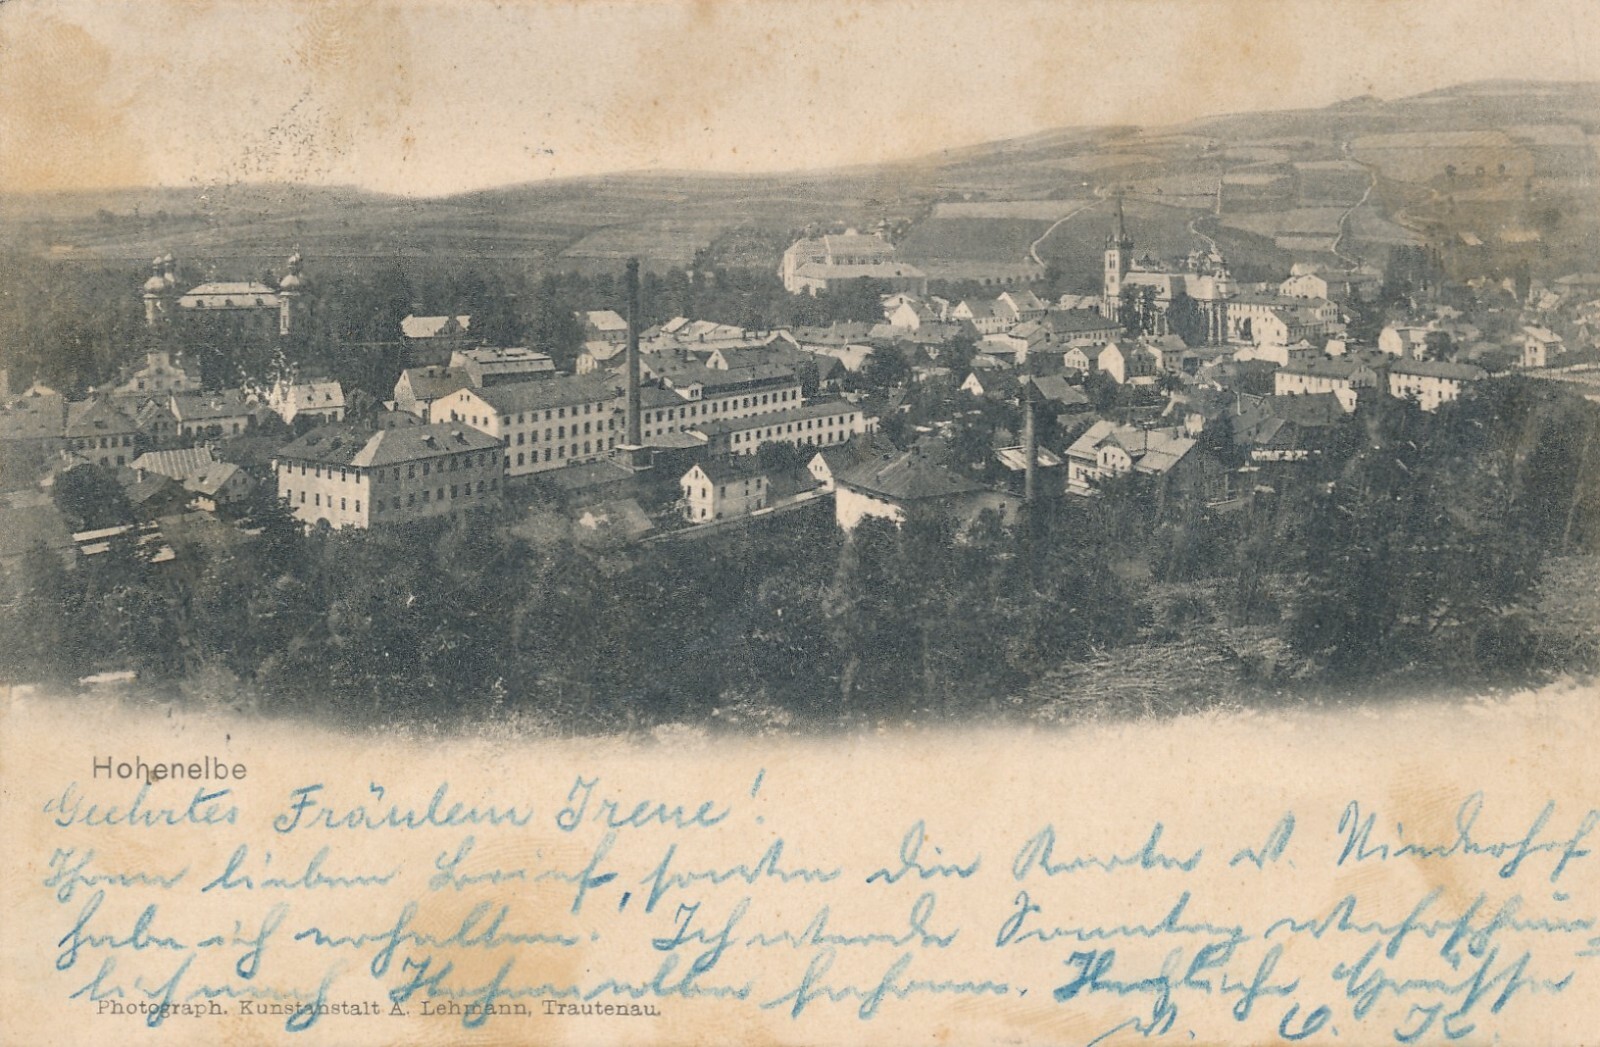 Hohenelbe
Geehrtes Fräulein Irene!
Ihren lieben Brief, sowie die Karte v. Niederhof
habe ich erhalten. Ich werde Sonntag wahrschein-
lich nach Hohenelbe fahren. Herzliche Grüsse
Photograph. Kunstanstalt A. Lehmann, Trautenau.
v. O. K.